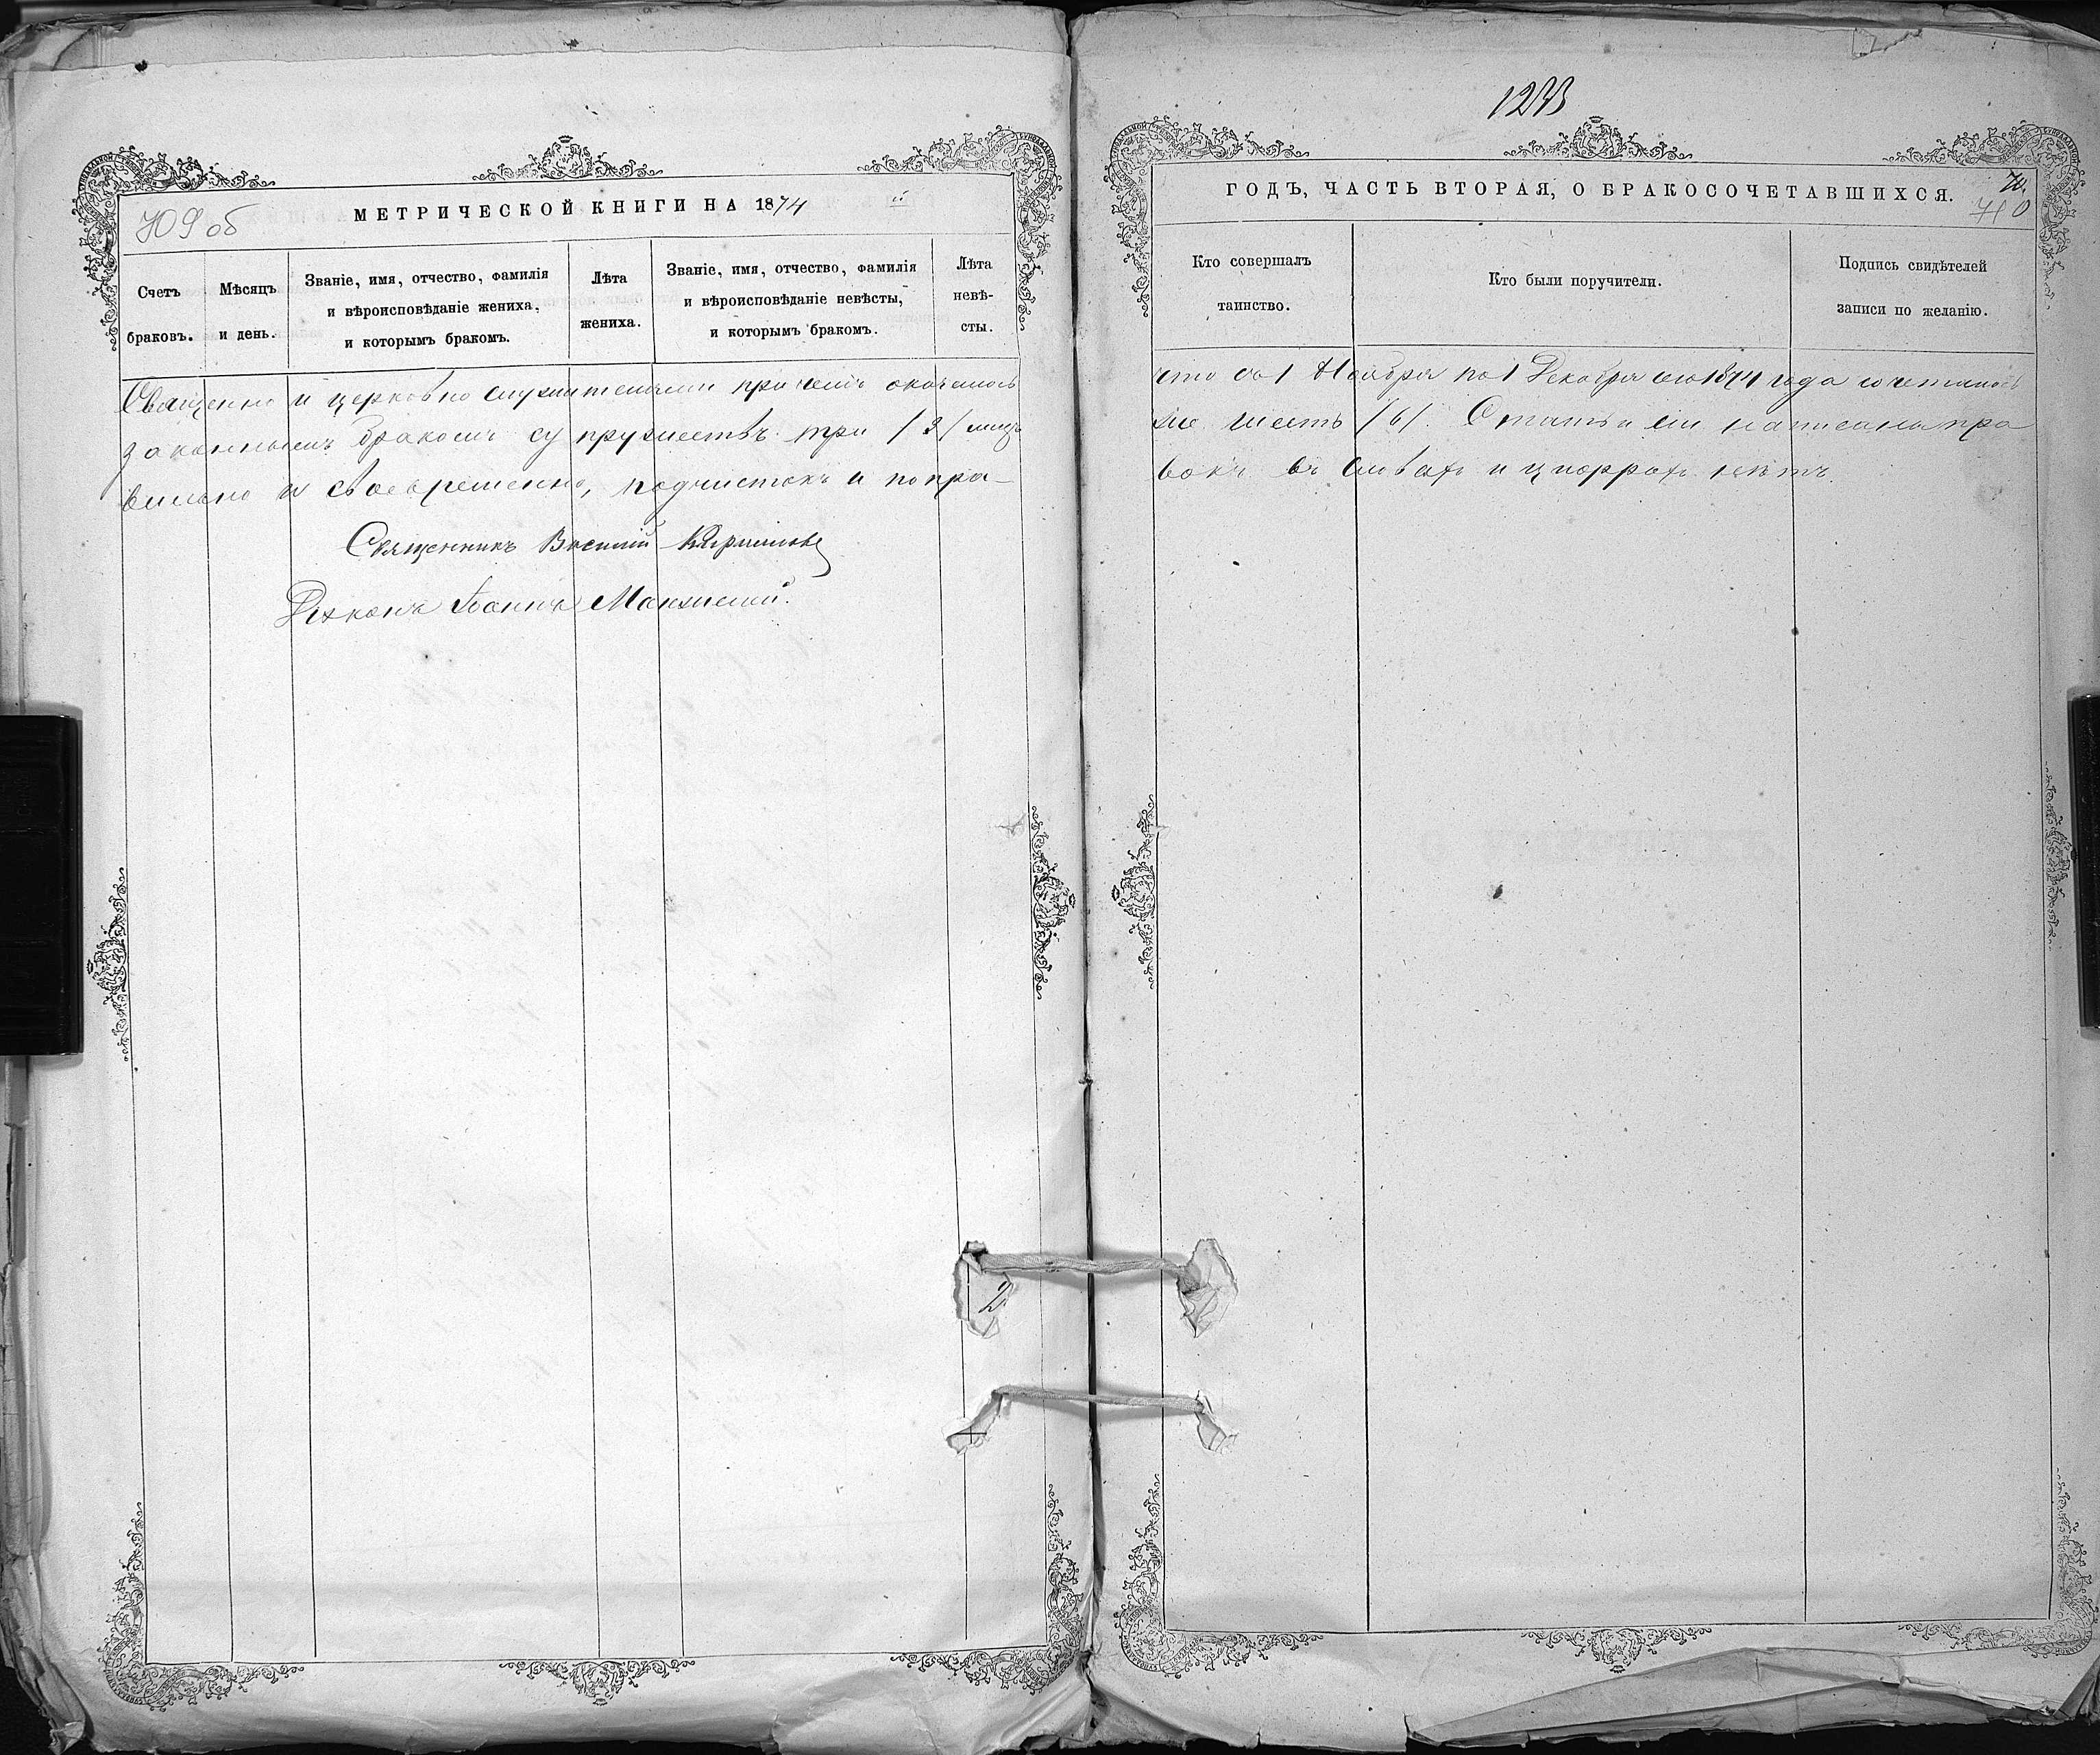 709 об
МЕТРИЧЕСКОЙ КНИГИ НА 1874
Счетъ браковъ.
Мѣсяцъ и день.
Званіе, имя, отчество, фамилія и вѣроисповѣданіе жениха, и которымъ бракомъ.
Лѣта жениха.
Званіе, имя, отчество, фамилія и вѣроисповѣданіе невѣсты, и которымъ бракомъ.
Лѣта невѣ-
сты.
Священно и церковно служителями при чемъ оказалось
законнымъ бракомъ супружествъ три /3/ лицъ
вильно и своевременно, подчистокъ и попра-
Священникъ Василій
Діаконъ Іоаннъ
2
ГОДЪ, ЧАСТЬ ВТОРАЯ, О БРАКОСОЧЕТАВШИХСЯ.
70.
710
Кто совершалъ таинство.
Кто были поручители.
Подпись свидѣтелей записи по желанію.
что со 1 Ноября по 1 Декабря сего 1874 года сочеталось
же шесть /6/. Статьи сіи написаны пра
вокъ въ словахъ и цыфрахъ нѣтъ.